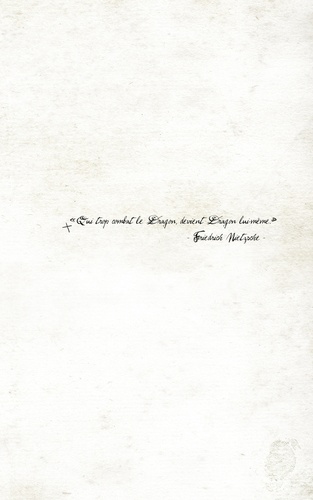 « Qui trop combat le Dragon, devient Dragon lui-même. »
- Friedrich Nietzsche -